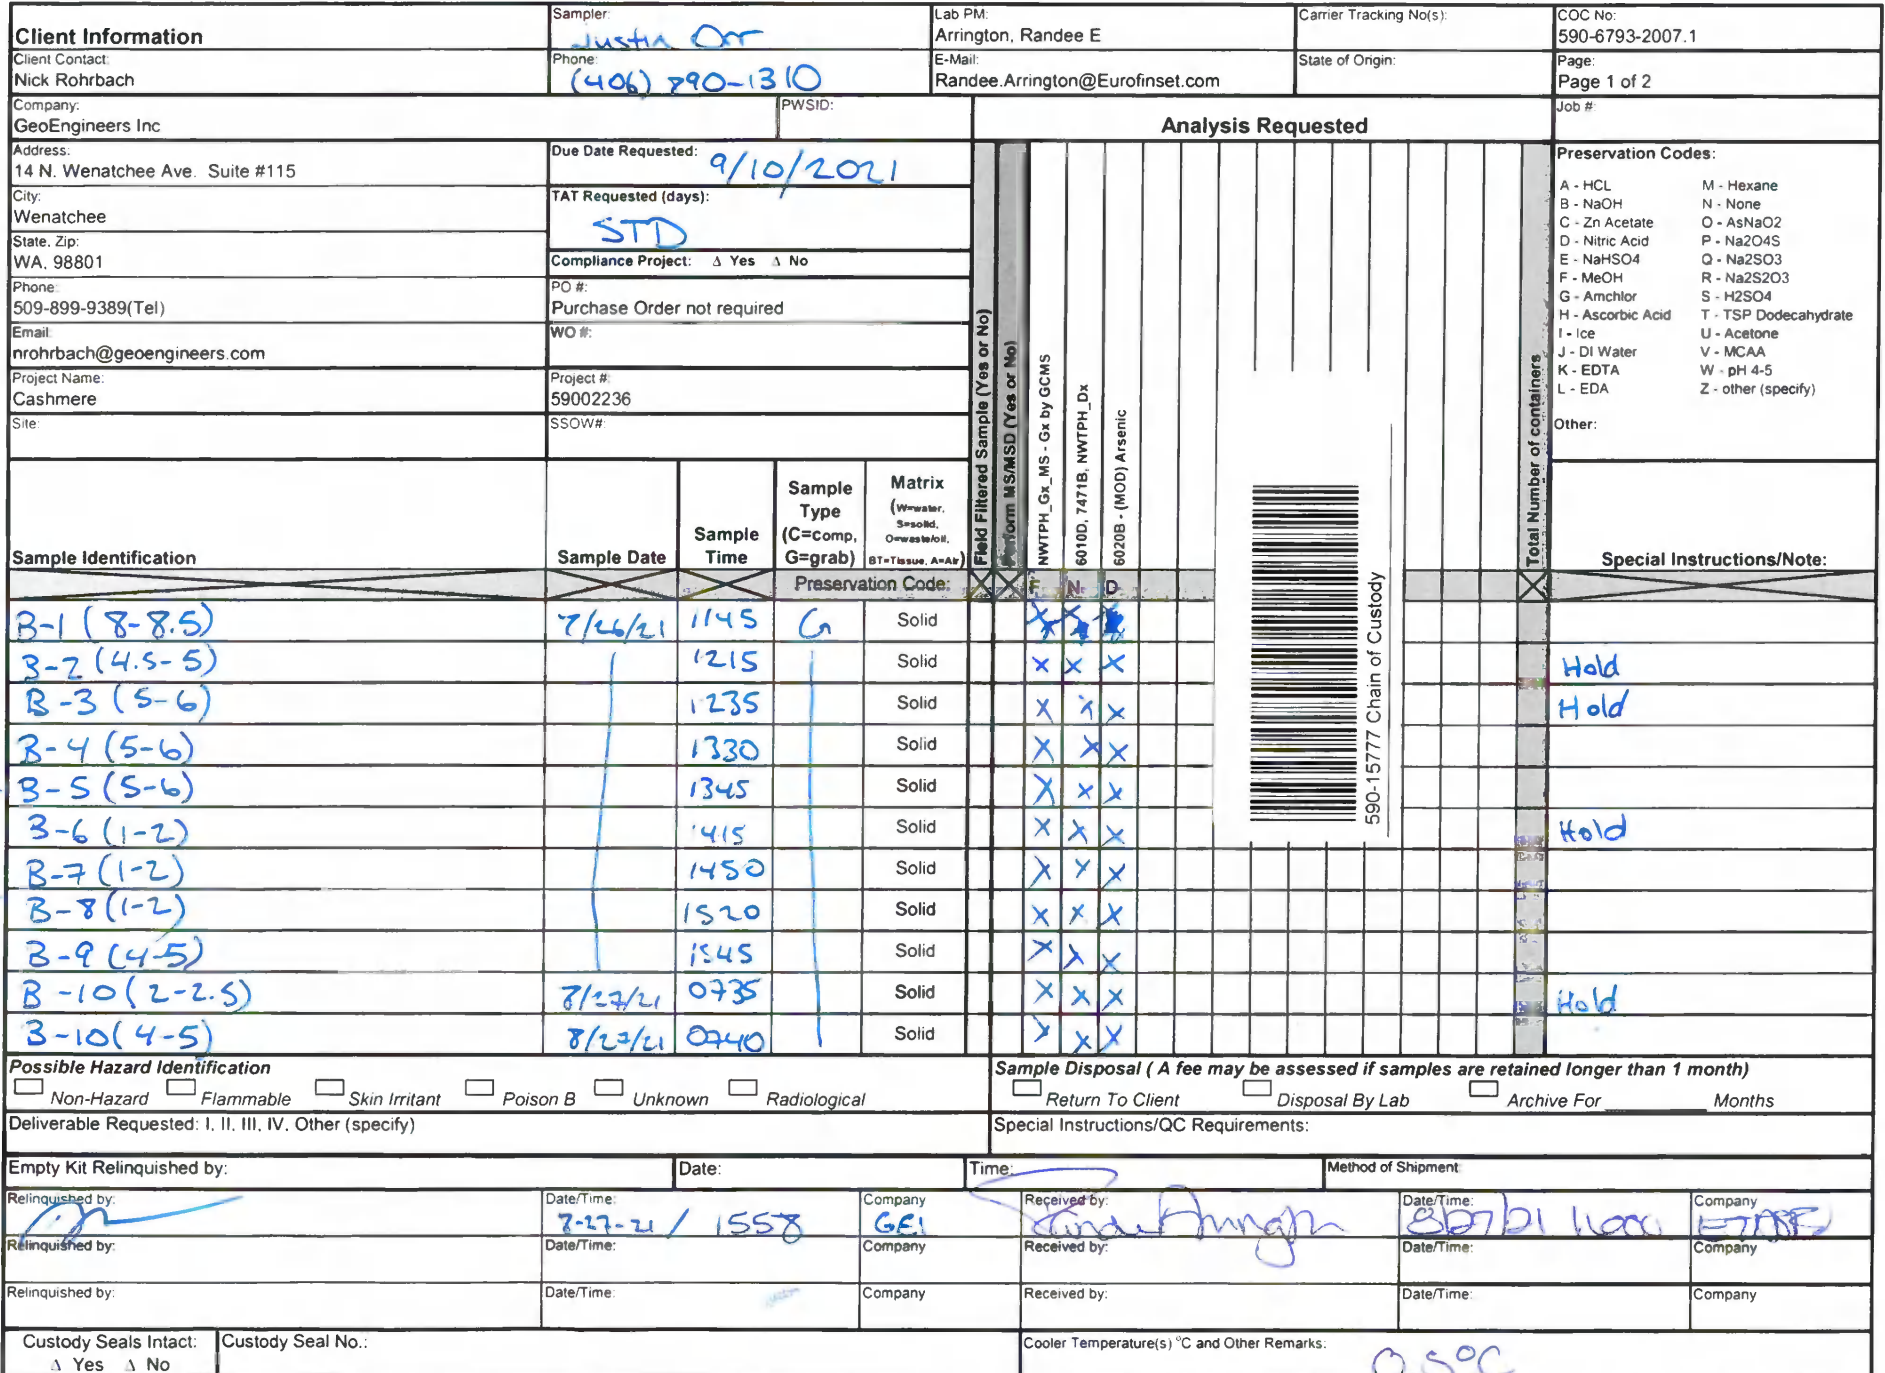 Client Information
Sampler:
Justin Orr
Lab PM:
Arrington, Randee E
Carrier Tracking No(s):
COC No:
590-6793-2007.1
Client Contact:
Nick Rohrbach
Phone:
(406) 890-1310
E-Mail:
Randee.Arrington@Eurofinset.com
State of Origin:
Page:
Page 1 of 2
Company:
GeoEngineers Inc
PWSID:
Analysis Requested
Job #:
Address:
14 N. Wenatchee Ave. Suite #115
Due Date Requested:
9/10/2021
City:
Wenatchee
TAT Requested (days):
STD
State, Zip:
WA, 98801
Compliance Project: Δ Yes Δ No
Phone:
509-899-9389(Tel)
PO #:
Purchase Order not required
Email:
nrohrbach@geoengineers.com
WO #:
Project Name:
Cashmere
Project #:
59002236
Site:
SSOW#:
Preservation Codes:
A - HCL M - Hexane
B - NaOH N - None
C - Zn Acetate O - AsNaO2
D - Nitric Acid P - Na2O4S
E - NaHSO4 Q - Na2SO3
F - MeOH R - Na2S2O3
G - Amchlor S - H2SO4
H - Ascorbic Acid T - TSP Dodecahydrate
I - Ice U - Acetone
J - DI Water V - MCAA
K - EDTA W - pH 4-5
L - EDA Z - other (specify)
Other:
Sample Identification
Sample Date
Sample Time
Sample Type (C=comp, G=grab)
Matrix (W=water, S=solid, O=waste/oil, BT=Tissue, A=Air)
Field Filtered Sample (Yes or No)
Perform MS/MSD (Yes or No)
NWTPH_Gx_MS - Gx by GCMS
6010D, 7471B, NWTPH_Dx
6020B - (MOD) Arsenic
590-15777 Chain of Custody
Total Number of containers
Special Instructions/Note:
Preservation Code: F N D
B-1 (8-8.5) 8/26/21 1145 G Solid X X X
B-2 (4.5-5) 1215 Solid X X X Hold
B-3 (5-6) 1235 Solid X X X Hold
B-4 (5-6) 1330 Solid X X X
B-5 (5-6) 1345 Solid X X X
B-6 (1-2) 1415 Solid X X X Hold
B-7 (1-2) 1450 Solid X X X
B-8 (1-2) 1520 Solid X X X
B-9 (4-5) 1545 Solid X X X
B-10 (2-2.5) 8/27/21 0735 Solid X X X Hold
B-10 (4-5) 8/27/21 0740 Solid X X X
Possible Hazard Identification
Non-Hazard Flammable Skin Irritant Poison B Unknown Radiological
Sample Disposal ( A fee may be assessed if samples are retained longer than 1 month)
Return To Client Disposal By Lab Archive For Months
Deliverable Requested: I, II, III, IV, Other (specify)
Special Instructions/QC Requirements:
Empty Kit Relinquished by:
Date:
Time:
Method of Shipment:
Relinquished by:
Date/Time:
8-27-21 / 1558
Company
GEI
Received by:
Randee Arrington
Date/Time:
8/27/21 1600
Company
Relinquished by:
Date/Time:
Company
Received by:
Date/Time:
Company
Relinquished by:
Date/Time:
Company
Received by:
Date/Time:
Company
Custody Seals Intact:
Δ Yes Δ No
Custody Seal No.:
Cooler Temperature(s) °C and Other Remarks: